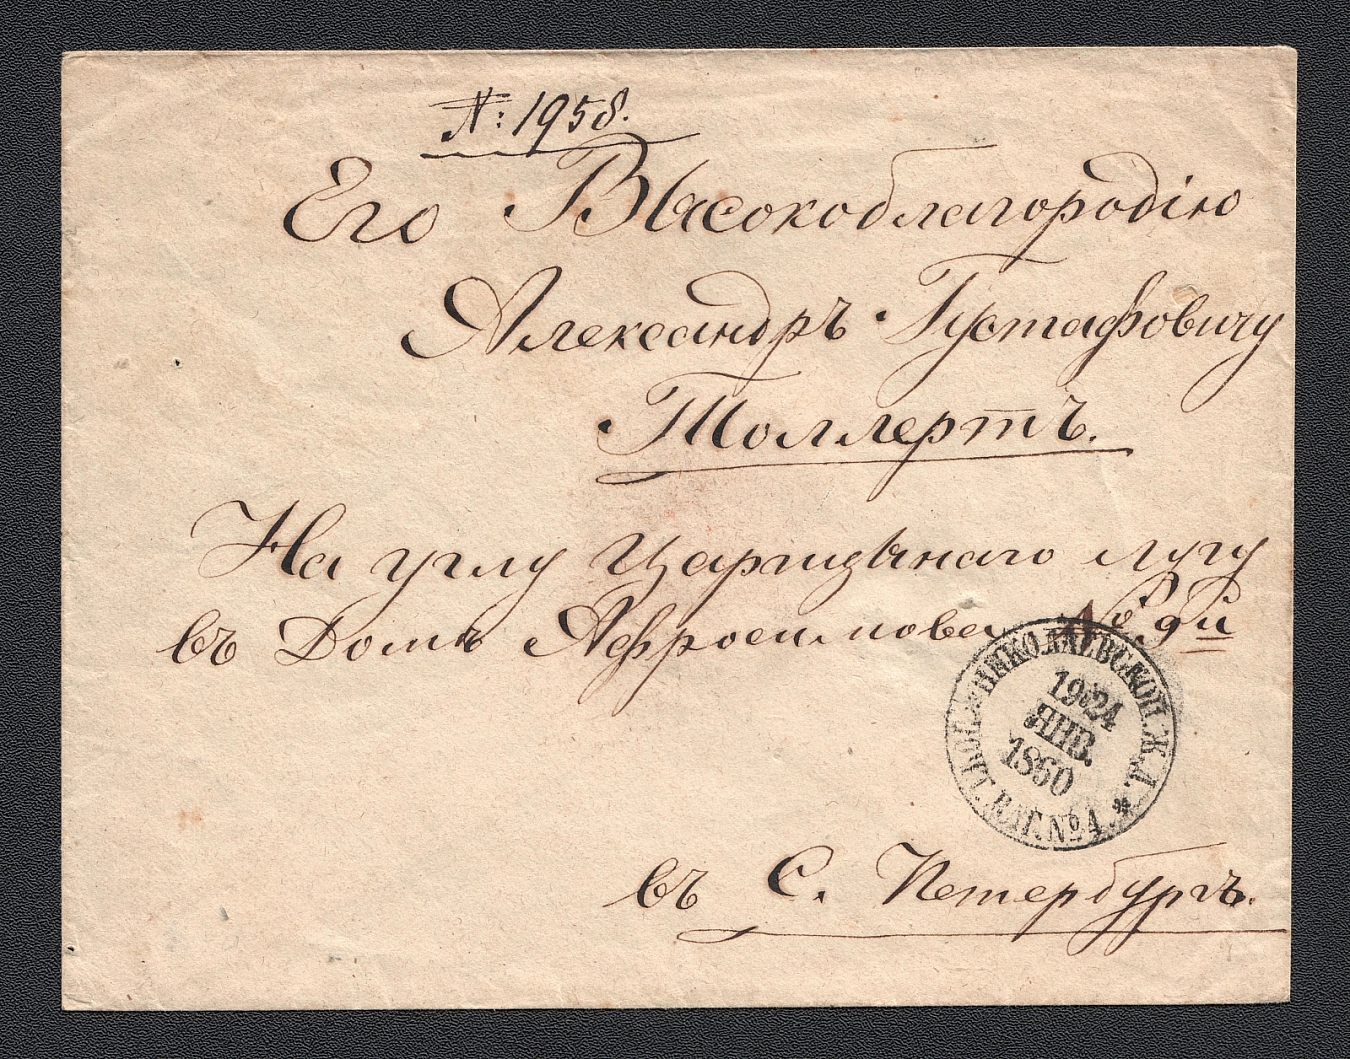 №: 1958.
Его Высокоблагородію
Александръ Густафовичу
Толлертъ.
На углу Царицынаго лугу
въ Домѣ Афросимова № 9й
ПОЧТ. ВАГ. № 4. * НИКОЛАЕВСКОЙ. Ж. Д.
1924
ЯНВ.
1860
въ С. Петербургъ.